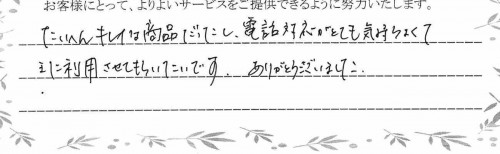 お客様にとって、よりよいサービスをご提供できるように努力いたします。
たいへんキレイな商品だったし、電話対応がとても気持ちよくて
又に利用させてもらいたいです。 ありがとうございました。